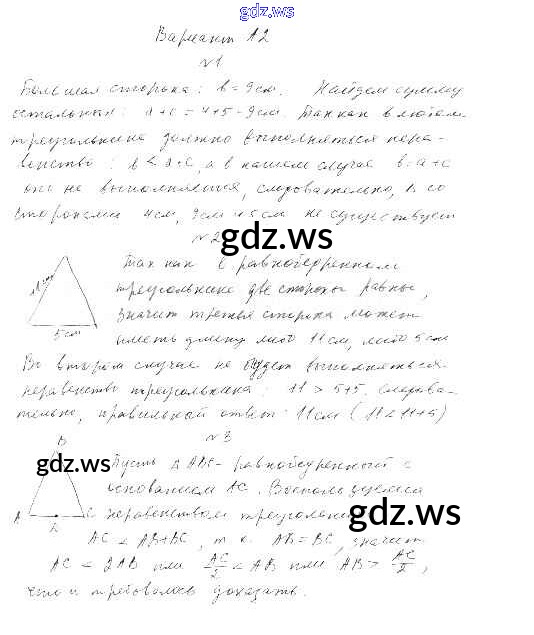 gdz.ws
Вариант А2
№1
Большая сторона: в=9см. Найдем сумму
остальных: а+с=4+5=9см. Так как в любом
треугольнике должно выполняться нера-
венство: в<а+с, а в нашем случае в=а+с
оно не выполняется, следовательно, Δ со
сторонами 4см, 9см и 5см не существует
№2
gdz.ws
Так как в равнобедренном
треугольнике две стороны равны,
11см
значит третья сторона может
5см
иметь длину либо 11см, либо 5см
Во втором случае не будет выполняться
неравенство треугольника: 11 > 5+5. Следова-
тельно, правильной ответ: 11см (11<11+5)
№3
B
gdz.ws
Пусть ΔABC- равнобедренный с
основанием AC. Воспользуемся
A C неравенством треугольника
gdz.ws
AC < AB+BC, т.к. AB=BC, значит
AC < 2AB или AC/2 < AB или AB > AC/2,
что и требовалось доказать.